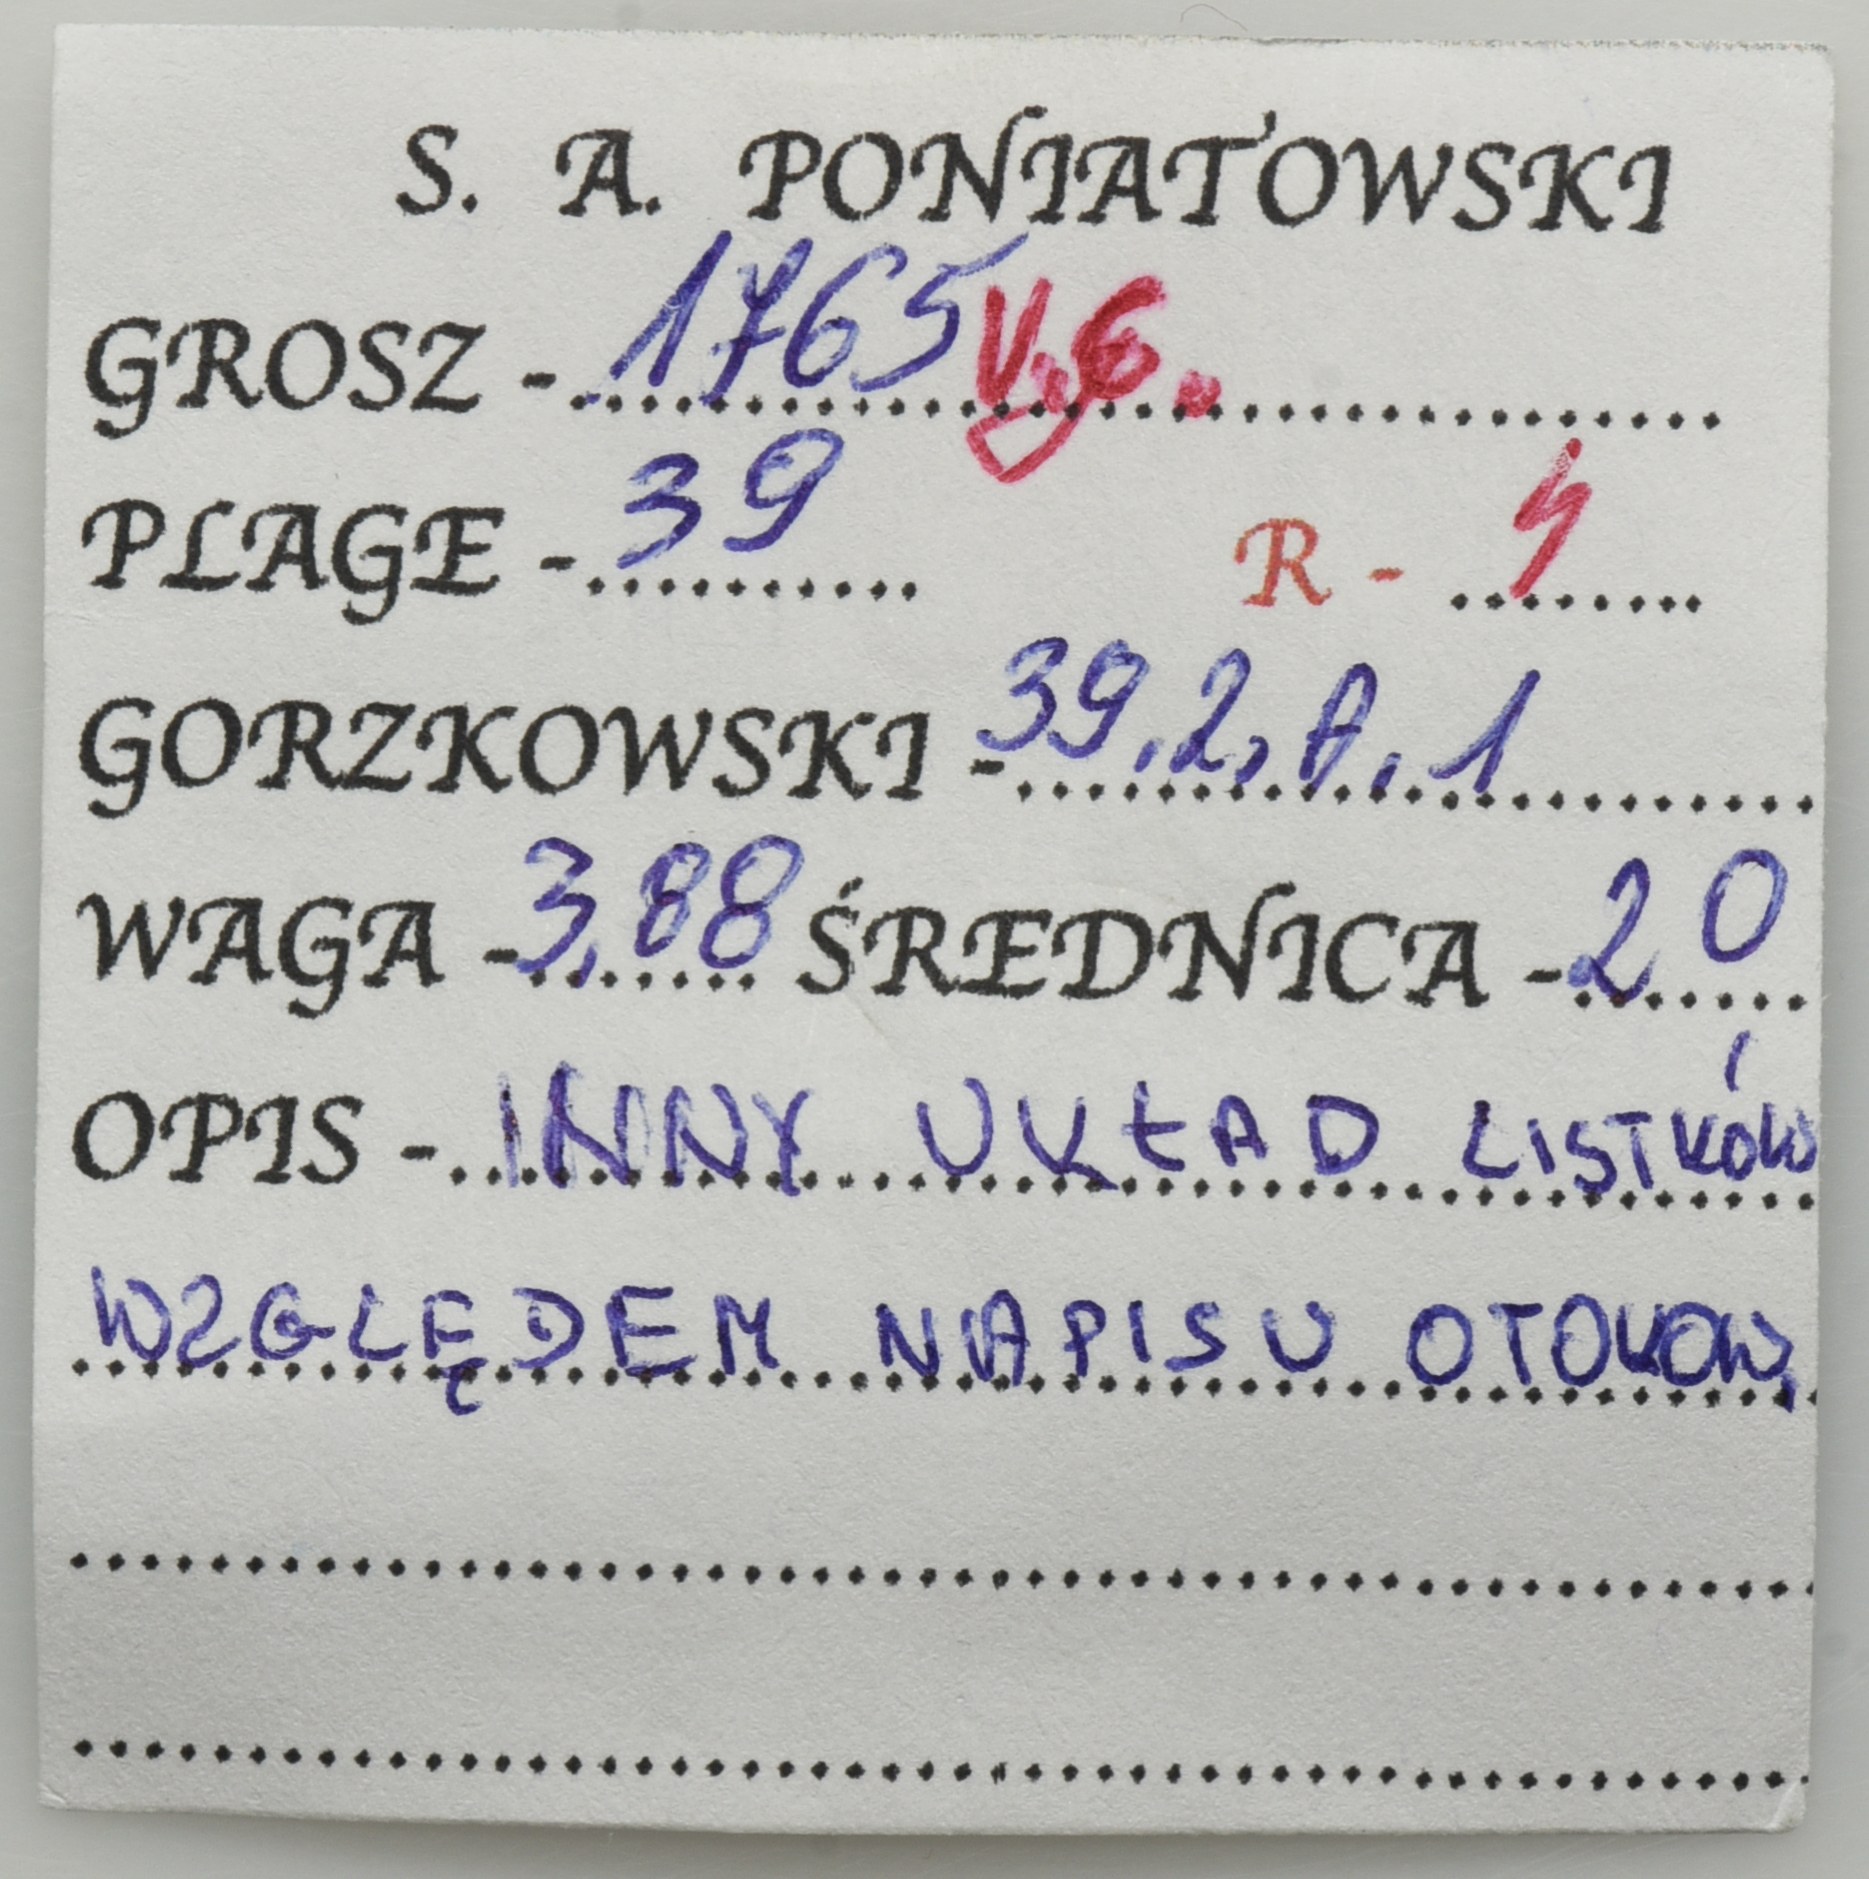 S. A. PONIATOWSKI
GROSZ - 1765 V.G.
PLAGE - 39 R - 4
GORZKOWSKI - 39,2,A,1
WAGA - 3,88 ŚREDNICA - 20
OPIS - INNY UKŁAD LISTKÓW
WZGLĘDEM NAPISU OTOKOW,